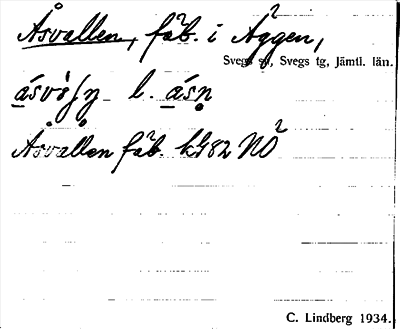 Åsvallen, fäb. i Äggen,
Svegs sn, Svegs tg, Jämtl. län.
l.
Åsvallen fäb. k482 NO
C. Lindberg 1934.